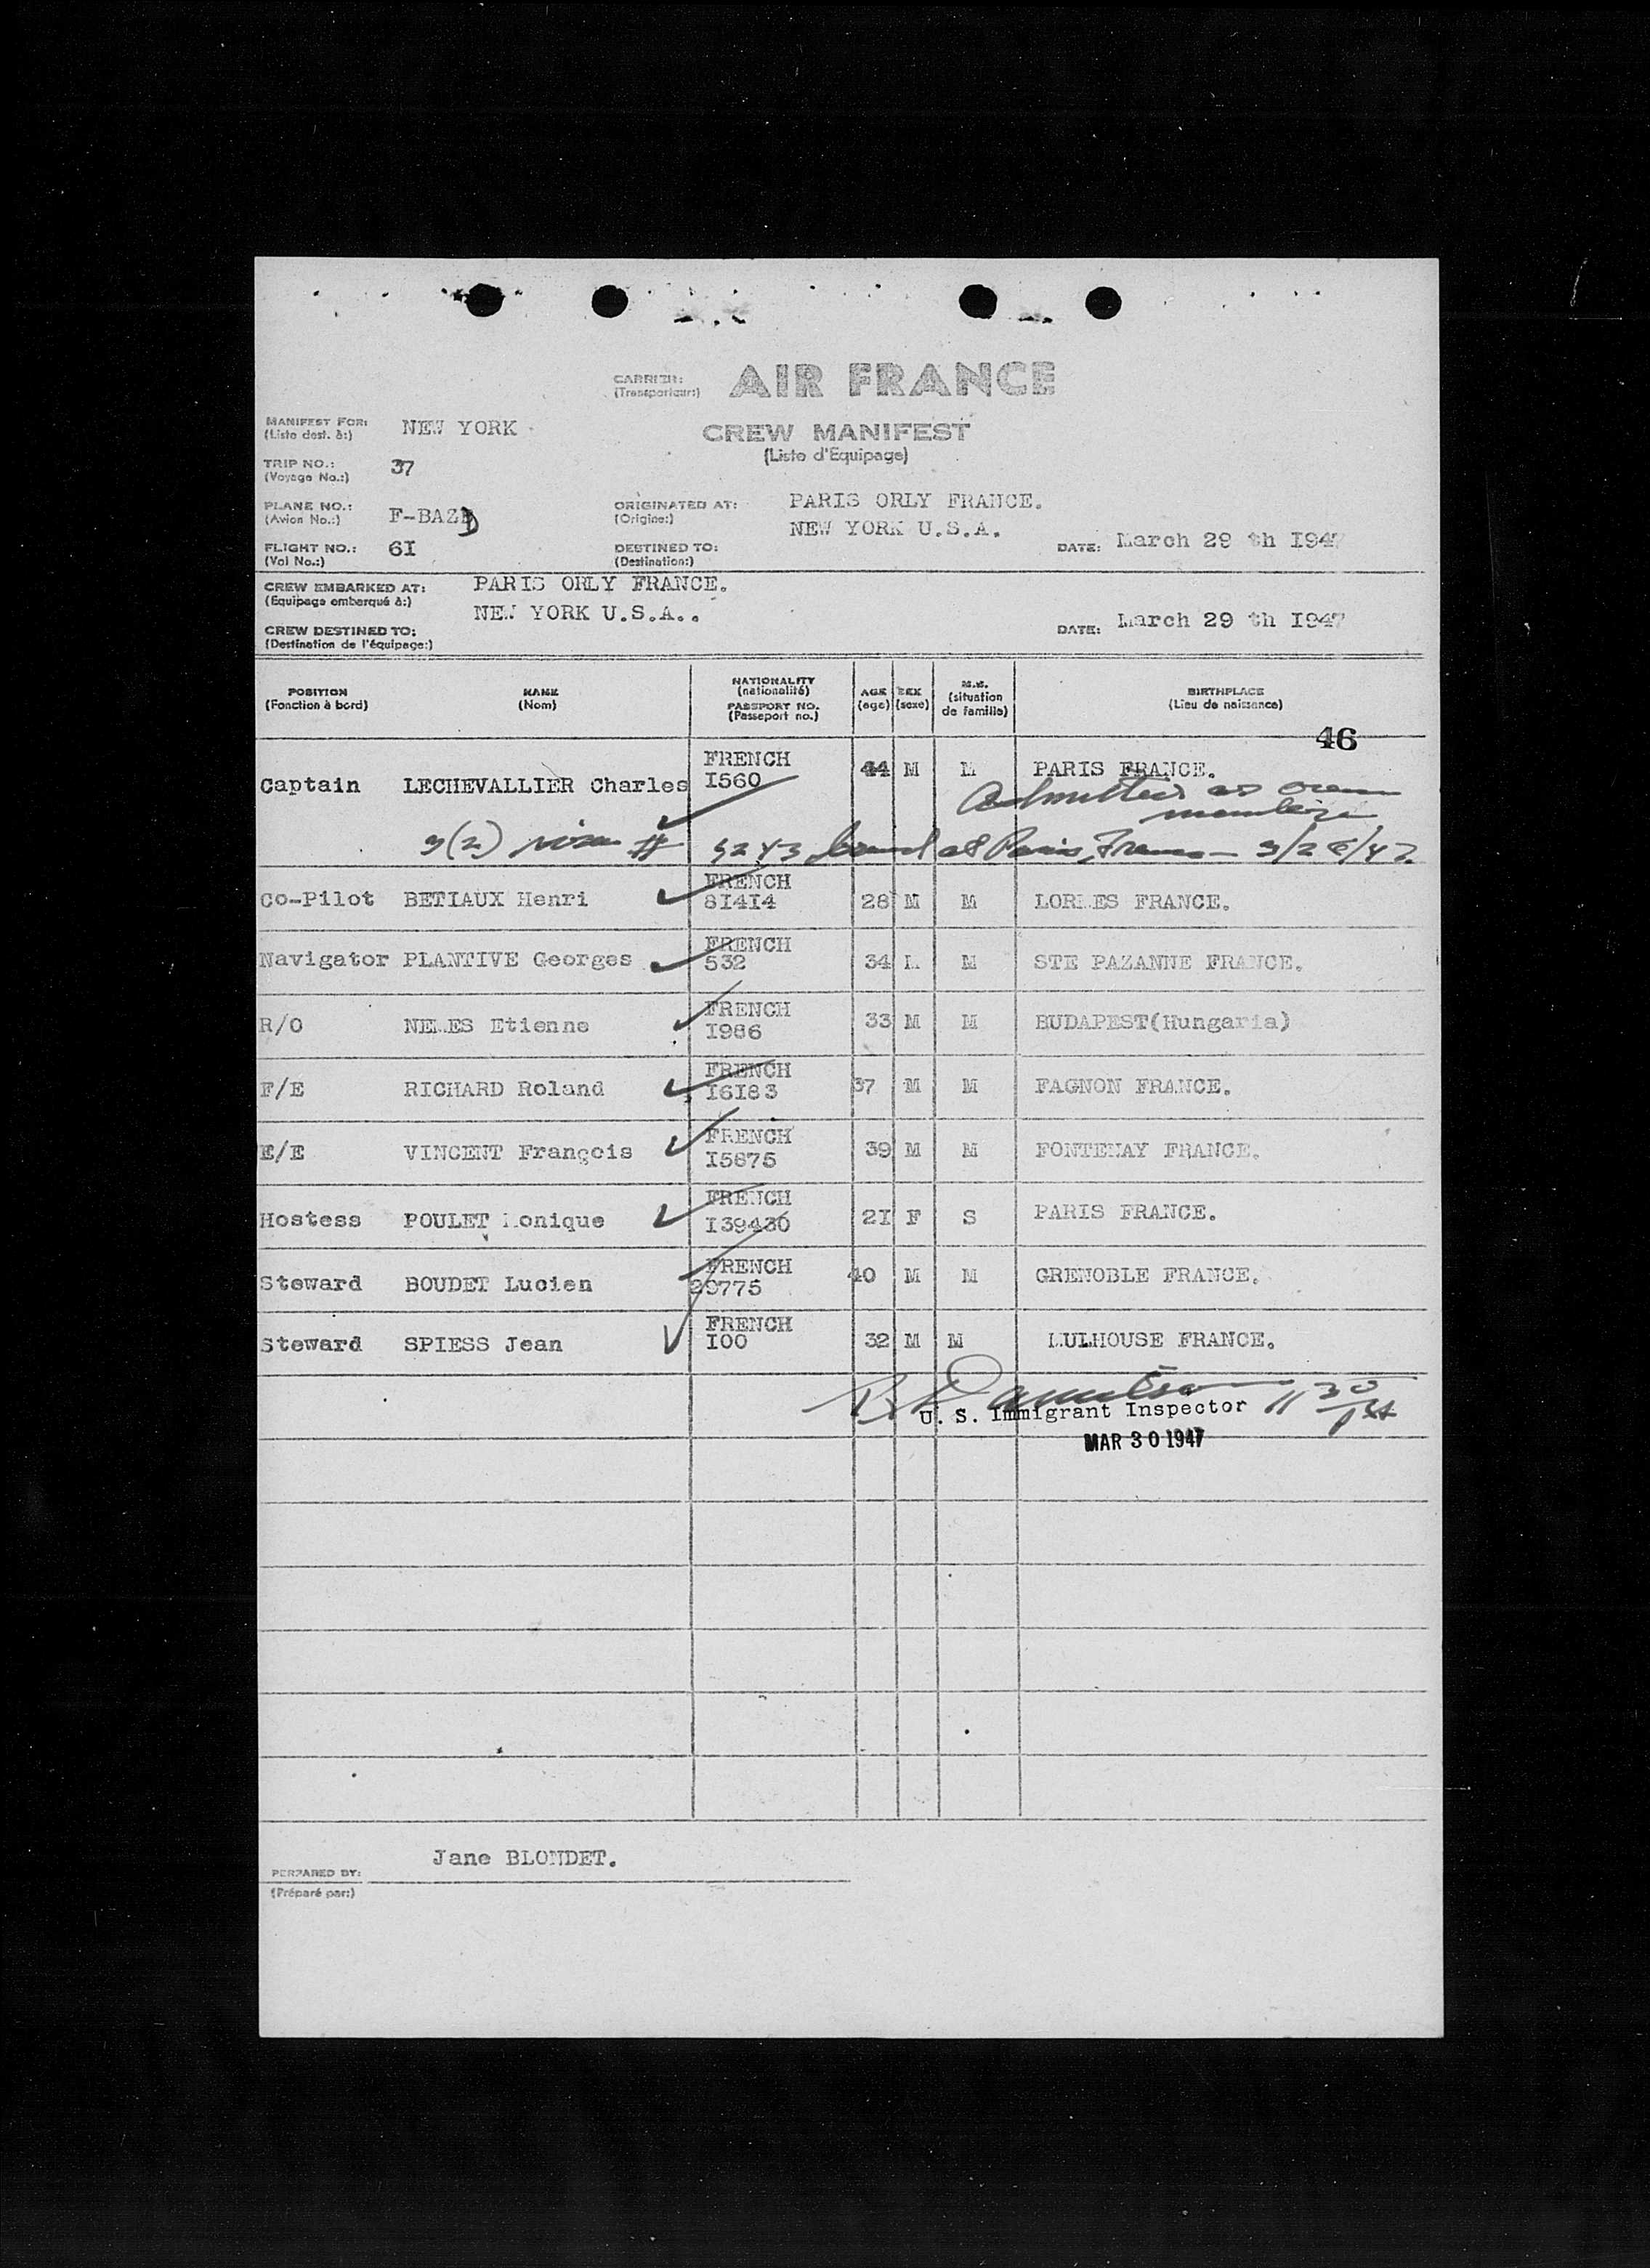 CARRIER: AIR FRANCE
(Transporteur:)
MANIFEST FOR: NEW YORK
(Liste dest. à:)
CREW MANIFEST
(Liste d'Equipage)
TRIP NO.: 37
(Voyage No.:)
PLANE NO.: F-BAZD
(Avion No.:)
ORIGINATED AT: PARIS ORLY FRANCE.
(Origine:)
NEW YORK U.S.A.
FLIGHT NO.: 6I
(Vol No.:)
DESTINED TO:
(Destination:)
DATE: March 29 th I947
CREW EMBARKED AT: PARIS ORLY FRANCE.
(Equipage embarqué à:)
NEW YORK U.S.A..
CREW DESTINED TO:
(Destination de l'équipage:)
DATE: March 29 th I947
POSITION NAME NATIONALITY AGE SEX M.S. BIRTHPLACE
(Fonction à bord) (Nom) (nationalité) (age) (sexe) (situation de famille) (Lieu de naissance)
PASSPORT NO.
(Passeport no.)
46
Captain LECHEVALLIER Charles FRENCH I560 44 M M PARIS FRANCE.
Admitted as crew
member
3(2) visa # at Paris, France - 3/28/47.
Co-Pilot BETIAUX Henri FRENCH 8I4I4 28 M M FRANCE.
Navigator PLANTIVE Georges FRENCH 532 34 M M STE PAZANNE FRANCE.
R/O NEMES Etienne FRENCH I986 33 M M BUDAPEST(Hungaria)
F/E RICHARD Roland FRENCH I6I83 37 M M FAGNON FRANCE.
E/E VINCENT François FRENCH I5875 39 M M FONTENAY FRANCE.
Hostess POULET Monique FRENCH I39430 2I F S PARIS FRANCE.
Steward BOUDET Lucien FRENCH 29775 40 M M GRENOBLE FRANCE.
Steward SPIESS Jean FRENCH I00 32 M M MULHOUSE FRANCE.
11 30
U. S. Immigrant Inspector
MAR 30 1947
Jane BLONDET.
PERPARED BY:
(Préparé par:)